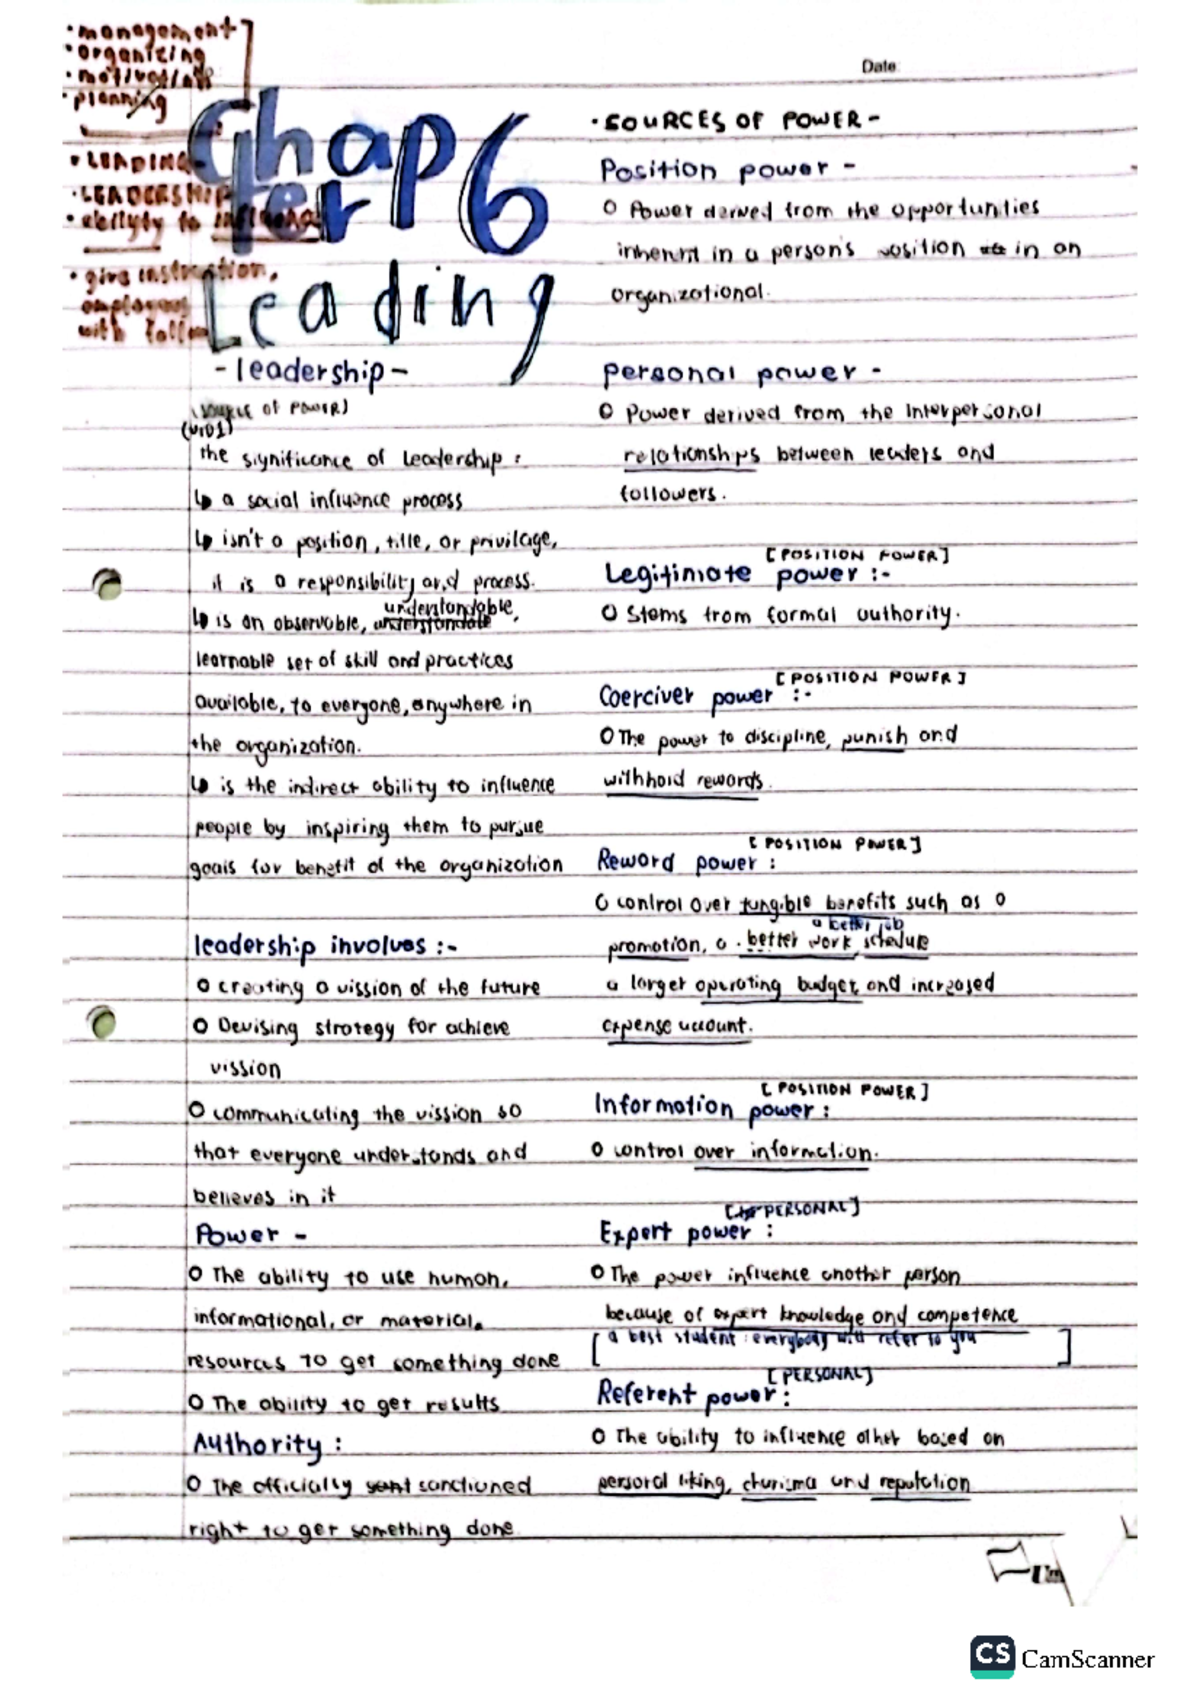 • management
• organizing
• motivation
• planning
• LEADING
• LEADERSHIP
• abilyty to influence
• give instruction,
employees
with follow
Chap
ter 6
Leading
- leadership -
(SOURCE OF POWER)
the significance of leadership :
↳ a social influence process
↳ isn't a position, title, or privilage,
it is a responsibility and process.
understandable,
↳ is an observable, understandale
learnable set of skill and practices
available, to everyone, anywhere in
the organization.
↳ is the indirect ability to influence
people by inspiring them to pursue
goals for benefit of the organization
leadership involves :-
o creating a vission of the future
o Devising strategy for achieve
vission
o communicating the vission so
that everyone understands and
believes in it
Power -
o The ability to use human,
informational, or material,
resources to get something done
o The ability to get results
Authority :
o The officially sant sanctioned
right to get something done
Date:
• SOURCES OF POWER -
Position power -
o Power derived from the opportunities
inherent in a person's position in an
organizational.
personal power -
o Power derived from the interpersonal
relationships between leaders and
followers.
[POSITION POWER]
Legitimate power :-
o Stems from formal authority.
[POSITION POWER]
Coerciver power :-
o The power to discipline, punish and
withhold rewards.
[POSITION POWER]
Reword power :
o control over tungible benefits such as a
a better job
promotion, a . better work schedule
a larger operating budget, and increased
expense account.
[POSITION POWER]
Information power :
o control over information.
[PERSONAL]
Expert power :
o The power influence another person
because of expert knowledge and competence
[a best student : everybody will refer to you]
[PERSONAL]
Referent power :
o The ability to influence other based on
personal liking, charisma and reputation
CS CamScanner